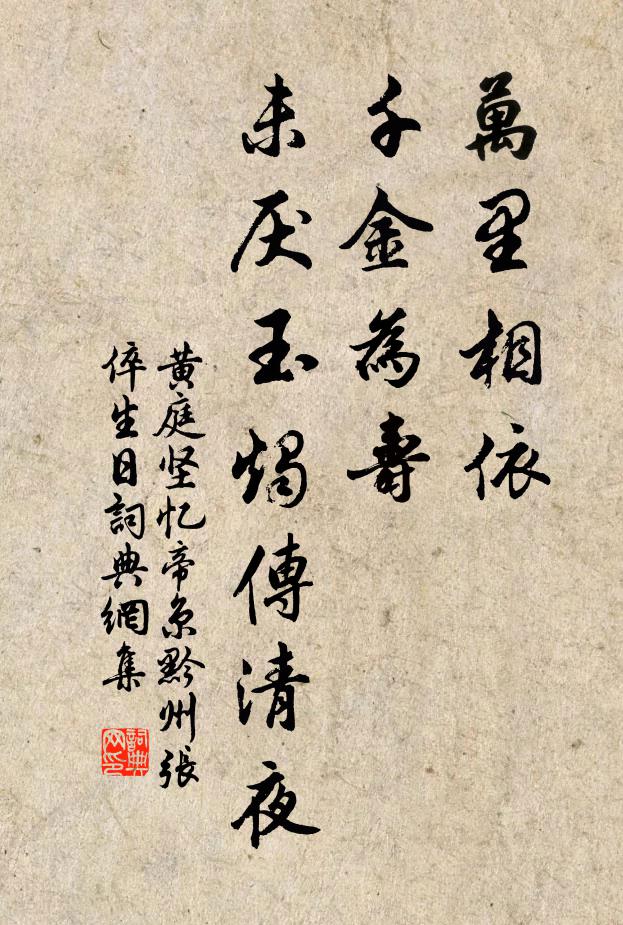 萬里相依
千金為壽
未厌玉燭傳清夜
黄庭坚忆帝京黔州張
倅生日詞典網集
詞典网印